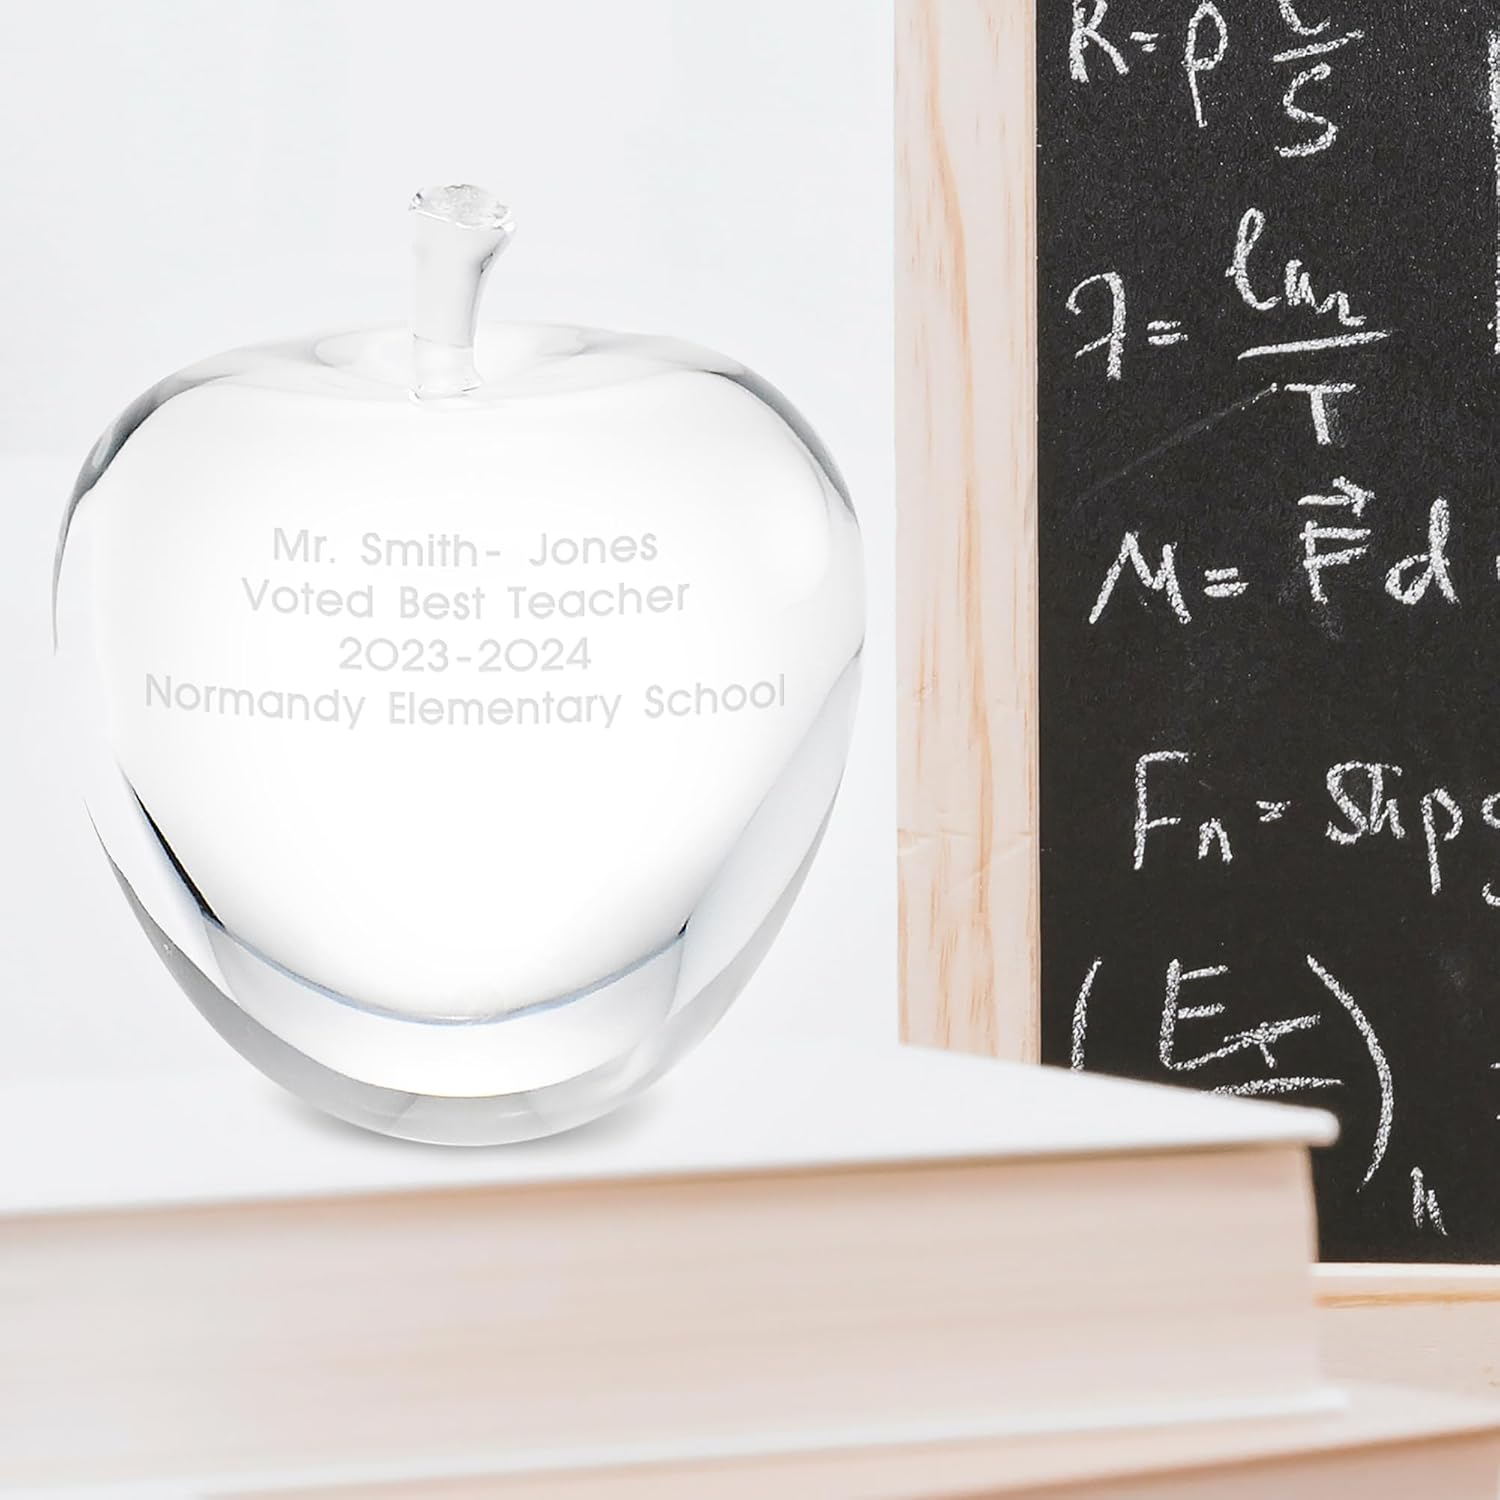 Mr. Smith- Jones
Voted Best Teacher
2023-2024
Normandy Elementary School
R=ρ
S
=
T
M= F⃗ d
Fn =
(E
T
)n